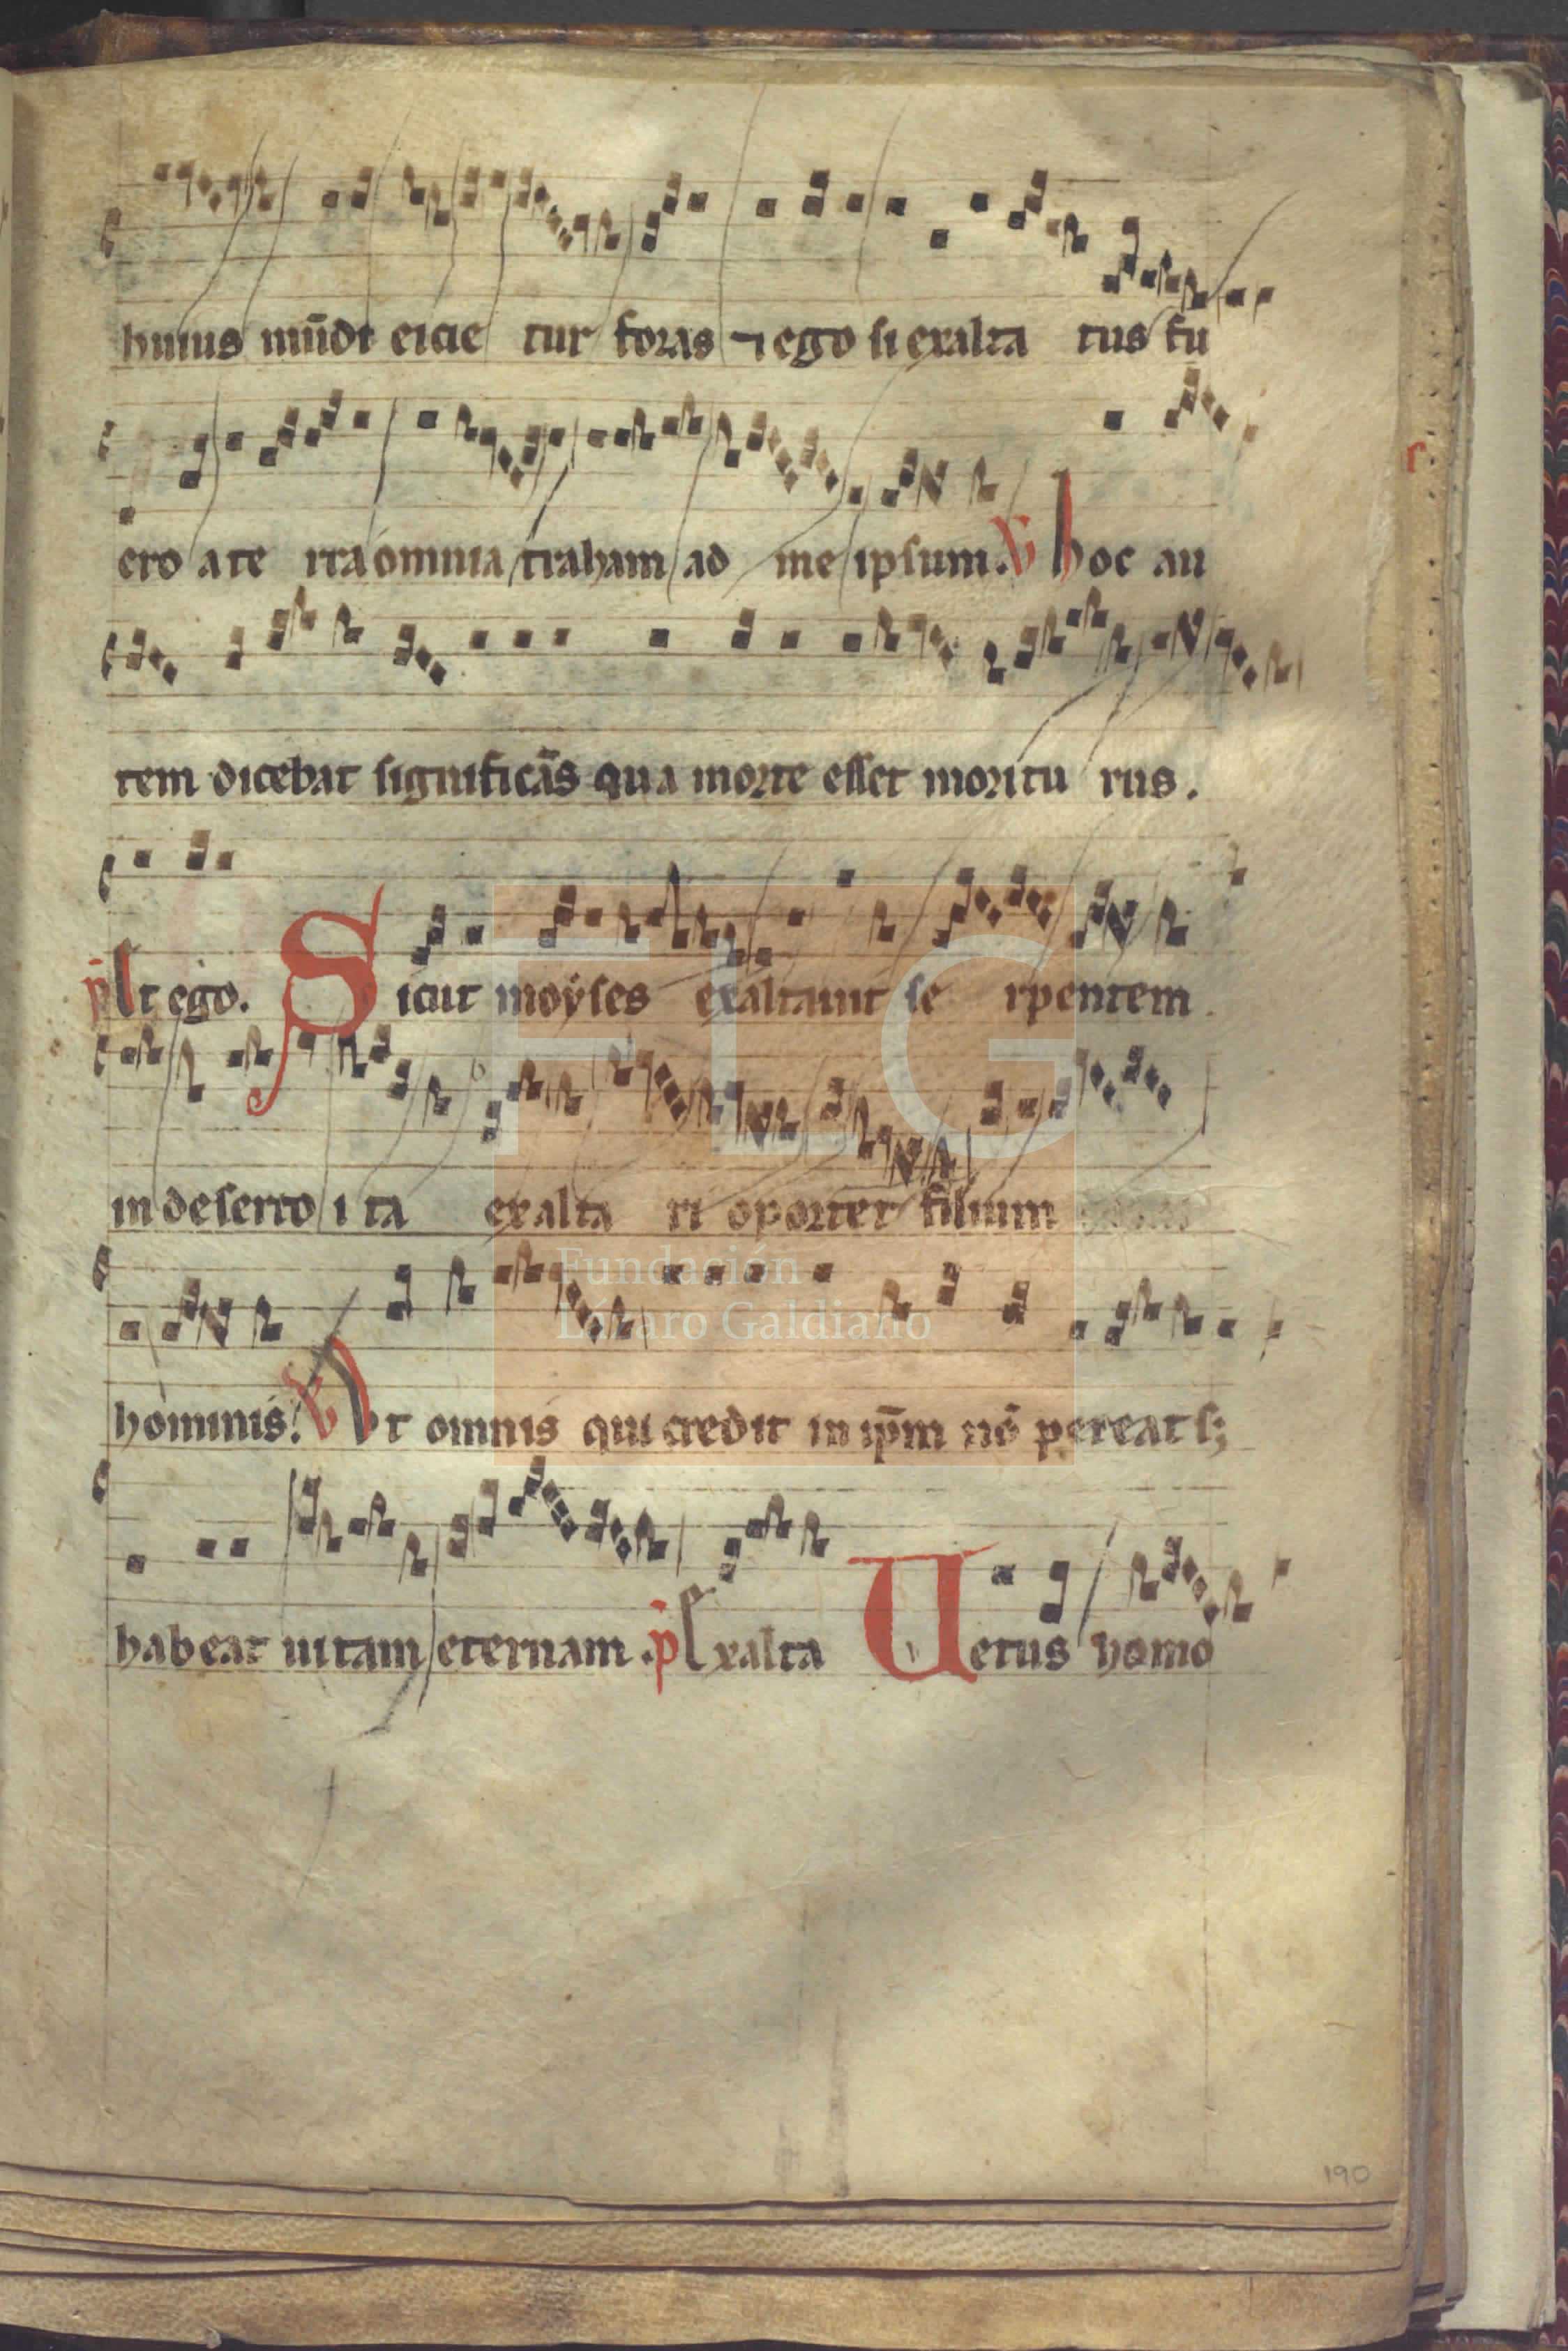 huius mūdi eicie tur foras ⁊ ego si exalta tus fu
ero a te rra omnia traham ad me ipsum. V hoc au
tem dicebat significās qua morte esset moritu rus.
p̄ Et ego. Sicut moyses exaltauit se rpentem
in deserto i ta exalta ri oportet filium
hominis. V Ut omnis qui credit in ip̄m nō pereat s;
habeat uitam eternam. p̄ Exalta Uetus homo
FLG
Fundación
Lázaro Galdiano
190